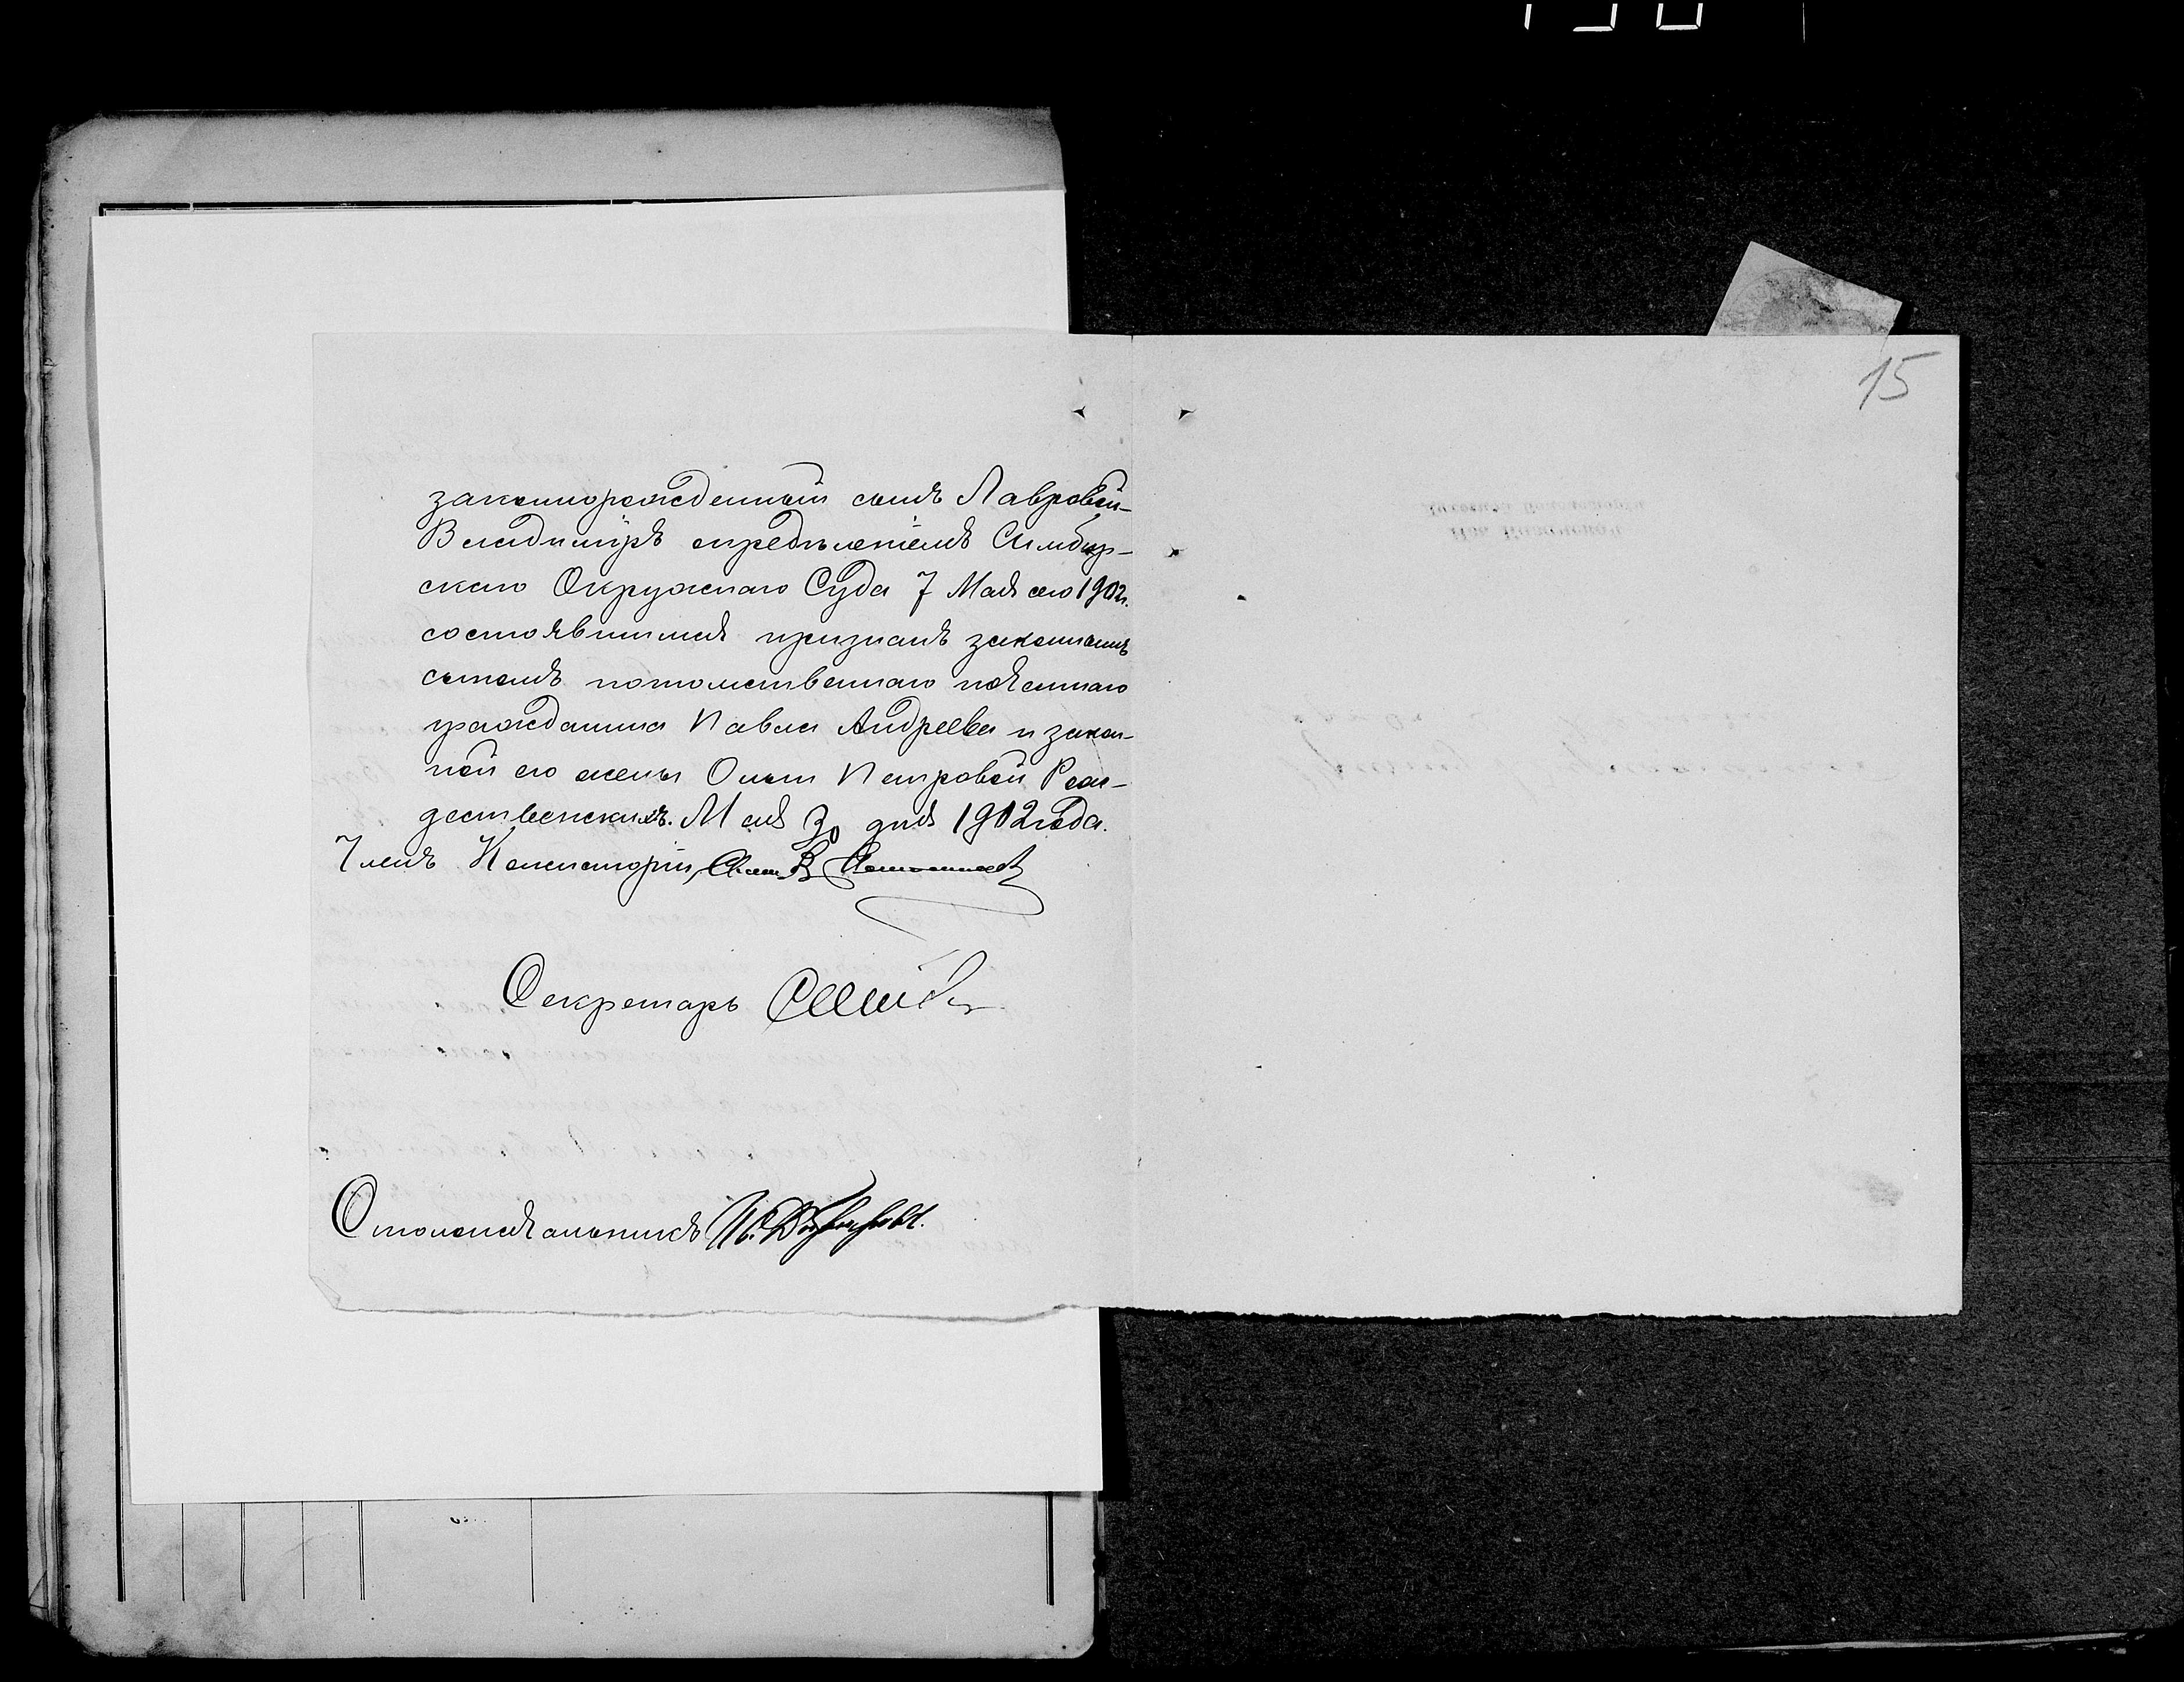 15
законнорожденный сынъ Лавровой
Владиміръ опредѣленіемъ Симбир-
скаго Окружнаго Суда 7 Мая сего 1902 г.
состоявшимся признанъ законнымъ
сыномъ потомственнаго почетнаго
гражданина Павла Андреева и закон-
ной его жены Ольги Петровой Рож-
дественскихъ. Мая 30 дня 1902 года.
Членъ Консисторіи, Свящ. В.
Секретарь
Столоначальникъ